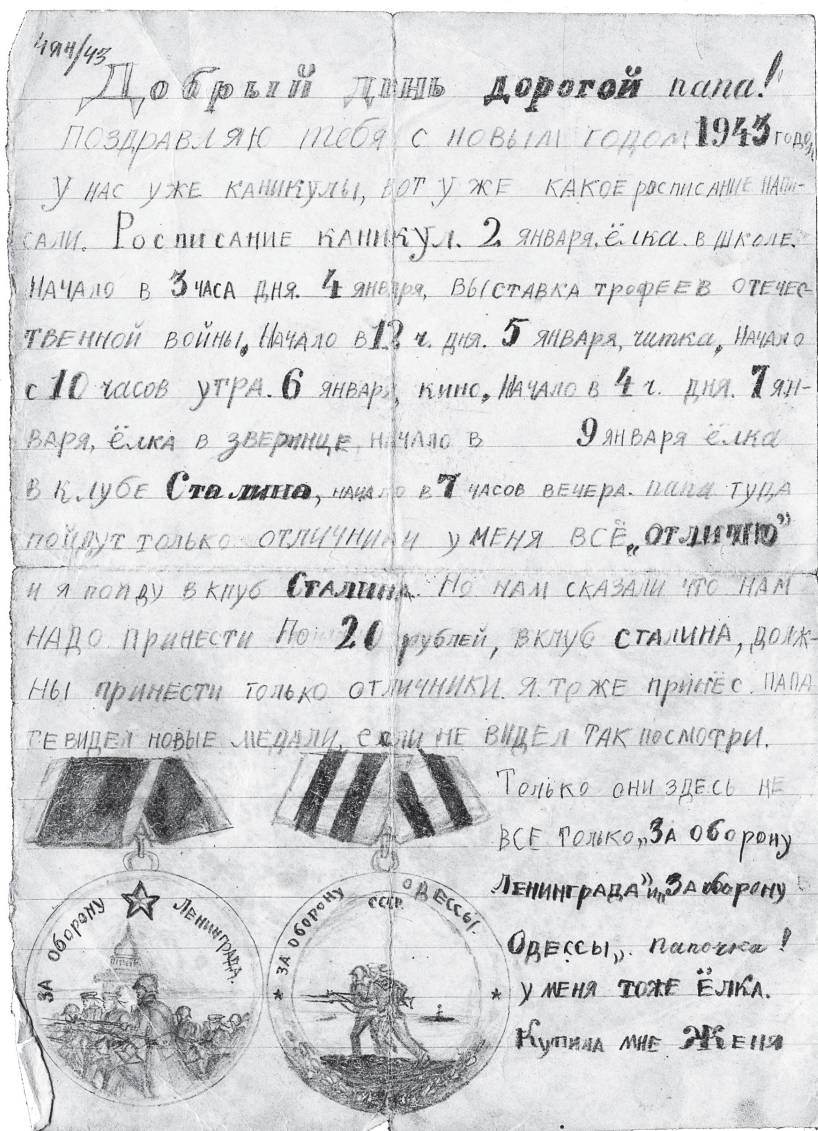 4 ян/43
Добрый день дорогой папа!
поздравляю тебя с новым годом 1943 годом
У нас уже каникулы, вот уже какое росписание напи-
сали. Росписание каникул. 2 января, ёлка. в школе.
Начало в 3 часа дня. 4 января, выставка трофеев отечес-
твенной войны, Начало в 12 ч. дня. 5 января, читка, Начало
с 10 часов утра. 6 января, кино, Начало в 4 ч. дня. 7 ян-
варя, ёлка в зверинце начало в 9 января ёлка
в клубе Сталина, начало в 7 часов вечера. папа туда
пойдут только отличники у меня всё „отлично”
и я пойду в клуб Сталина. Но нам сказали что нам
надо принести По 20 рублей, в клуб Сталина, долж-
ны принести только отличники. Я тоже принёс. папа
те видел новые медали, если не видел так посмотри.
Только они здесь не
все только „За оборону
Ленинграда” и „За оборону
Одессы„. Папочка!
у меня тоже ёлка.
Купила мне Женя
За оборону Ленинграда.
За оборону Одессы.
СССР